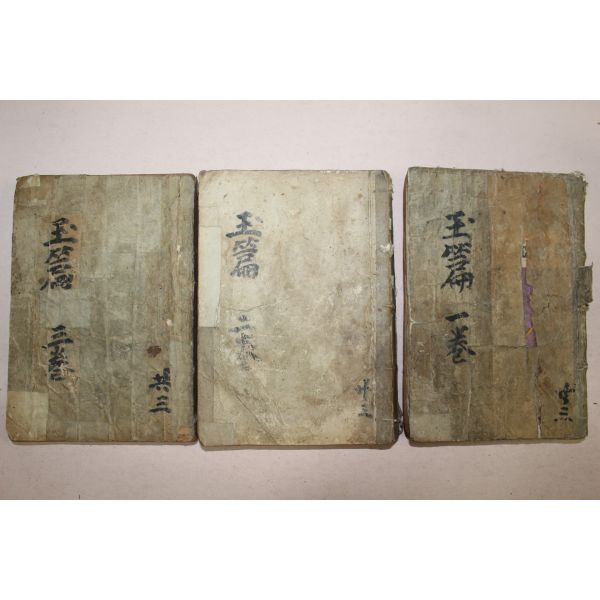 玉篇 三卷
共三
玉篇 二卷
共三
玉篇 一卷
共三